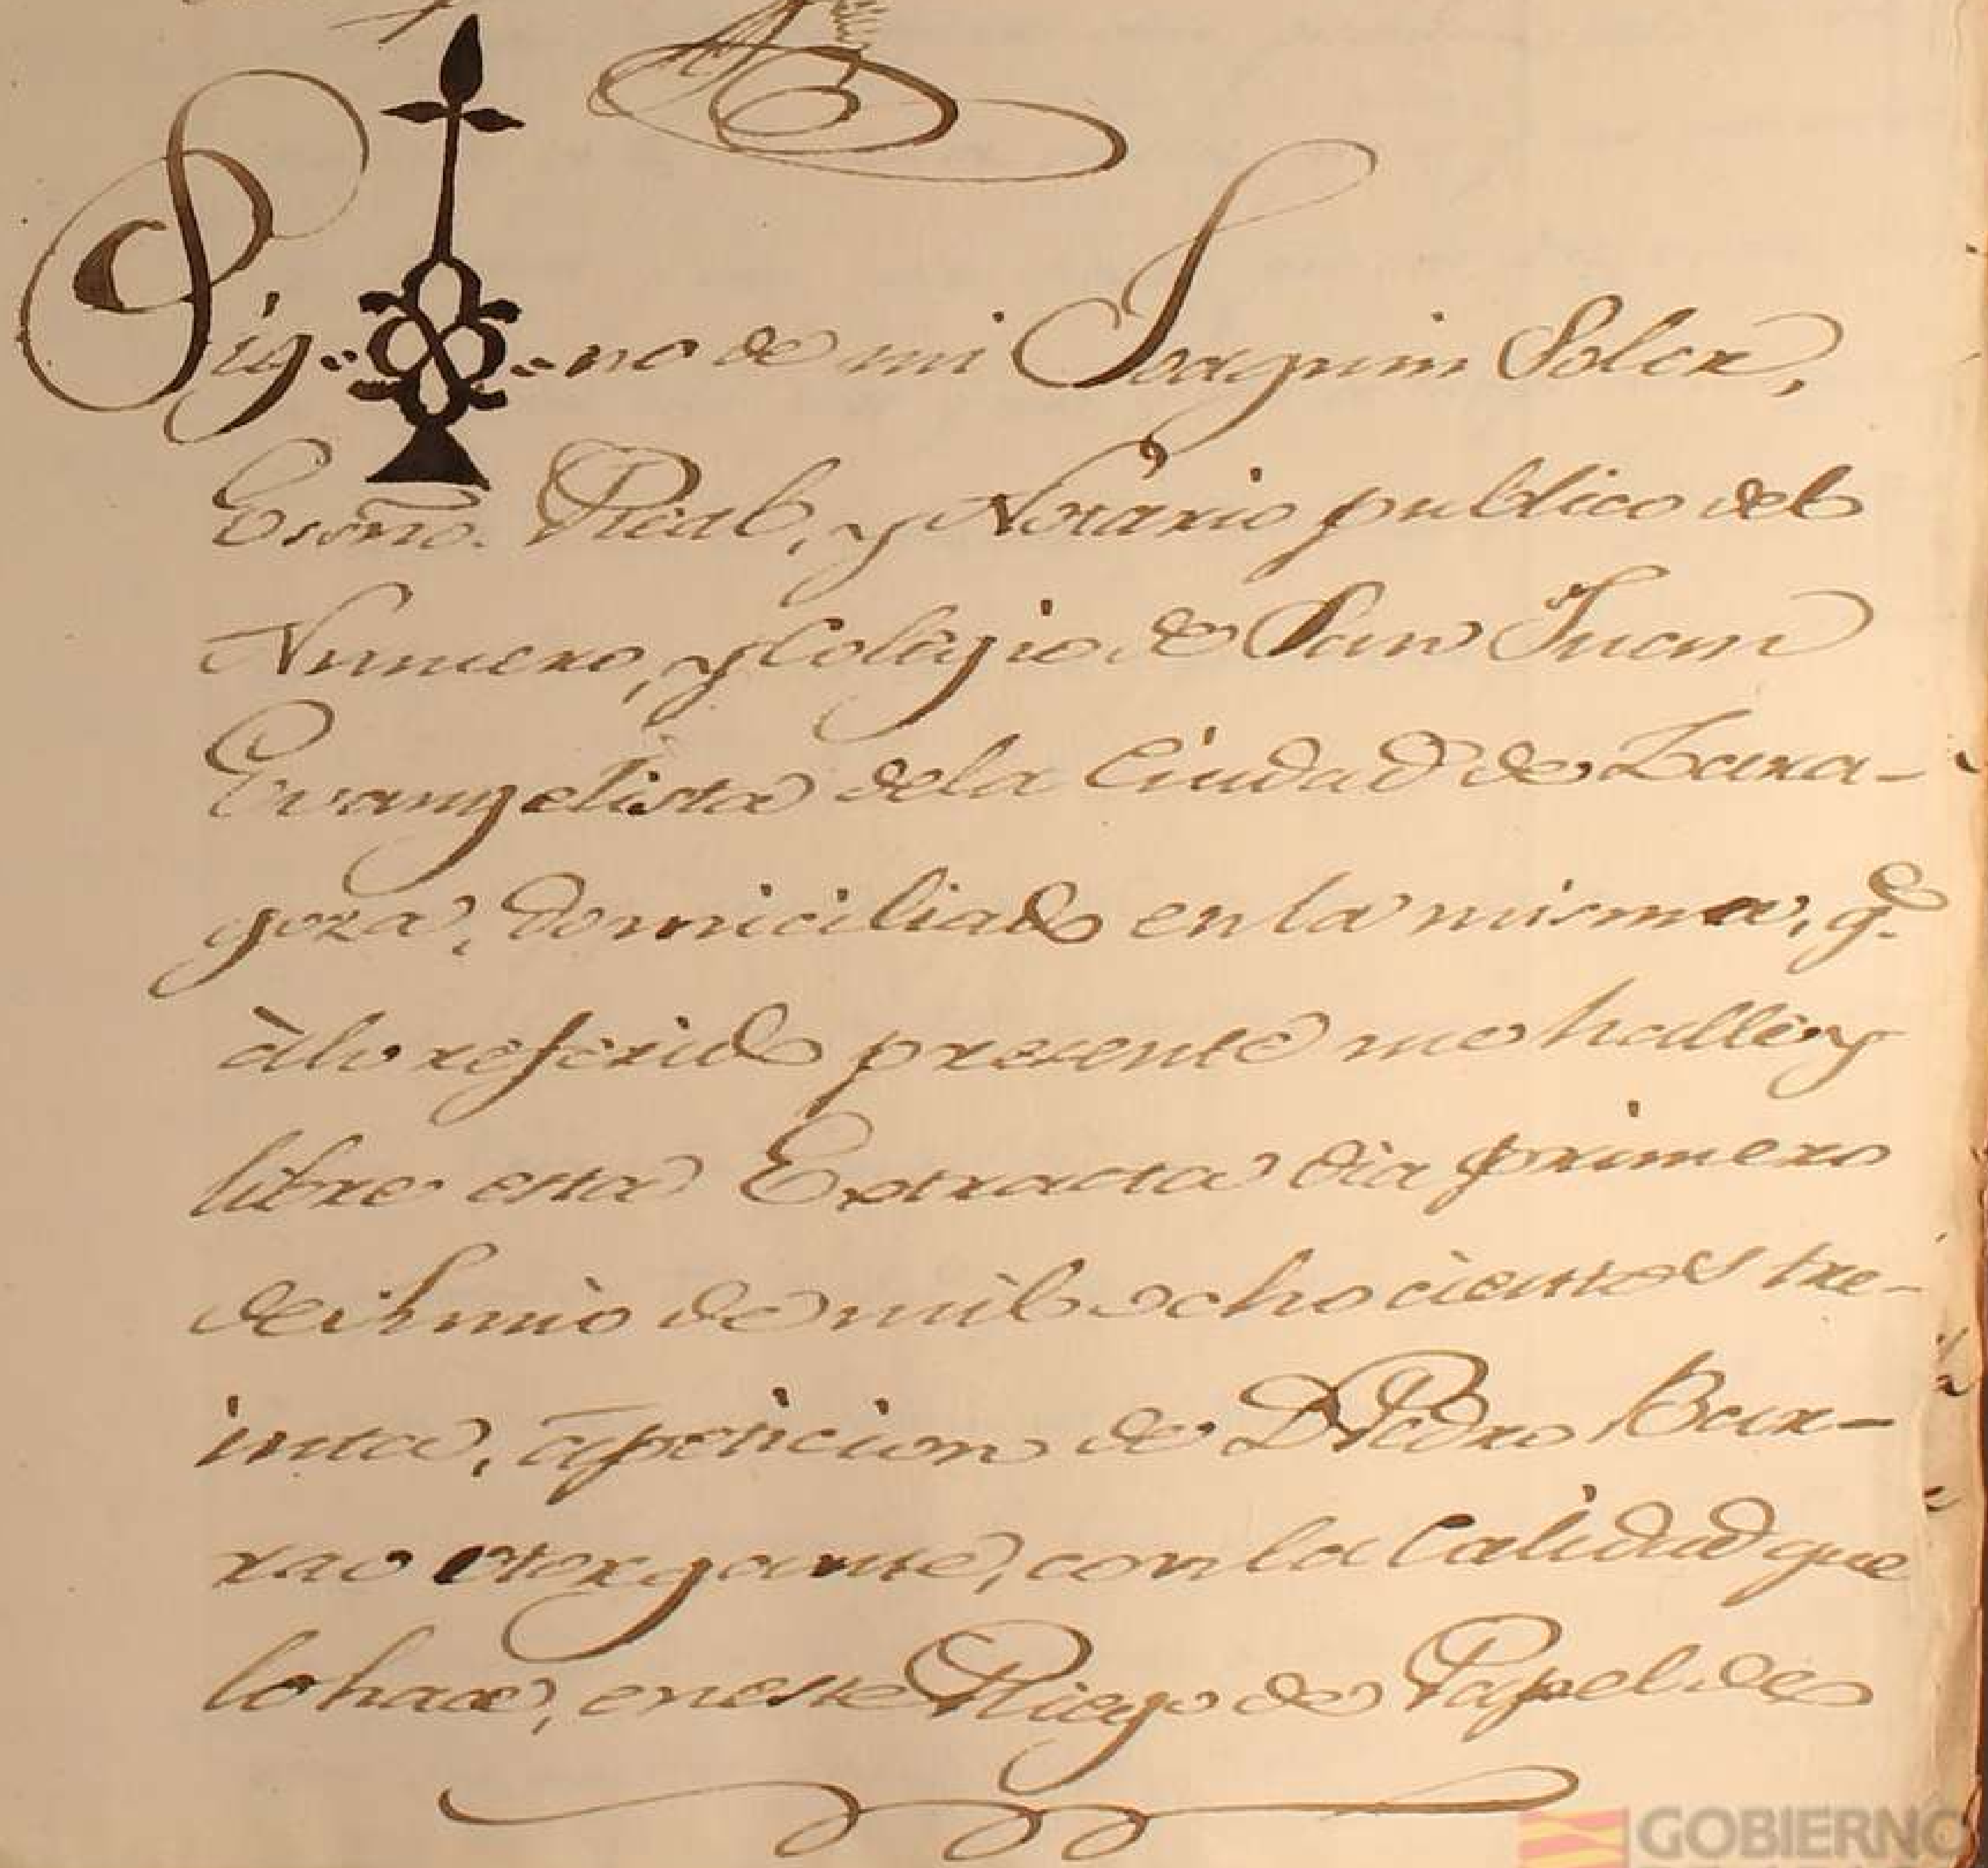 Sig.. ..no de mi Joaquin Soler,
Essño. Real, y Notario publico del
Numero, y Colegio de San Juan
Evangelista dela Ciudad de Zara-
goza, domiciliado en la misma, q.e
àlo referido presente me hallè, y
libre esta Extracta dia primero
de Junio de mil ochocientos tre-
inta, à peticion de D. Pedro Bar-
rao otorgante, con la Calidad que
lo hace, en este Pliego de Papel de
GOBIERNO